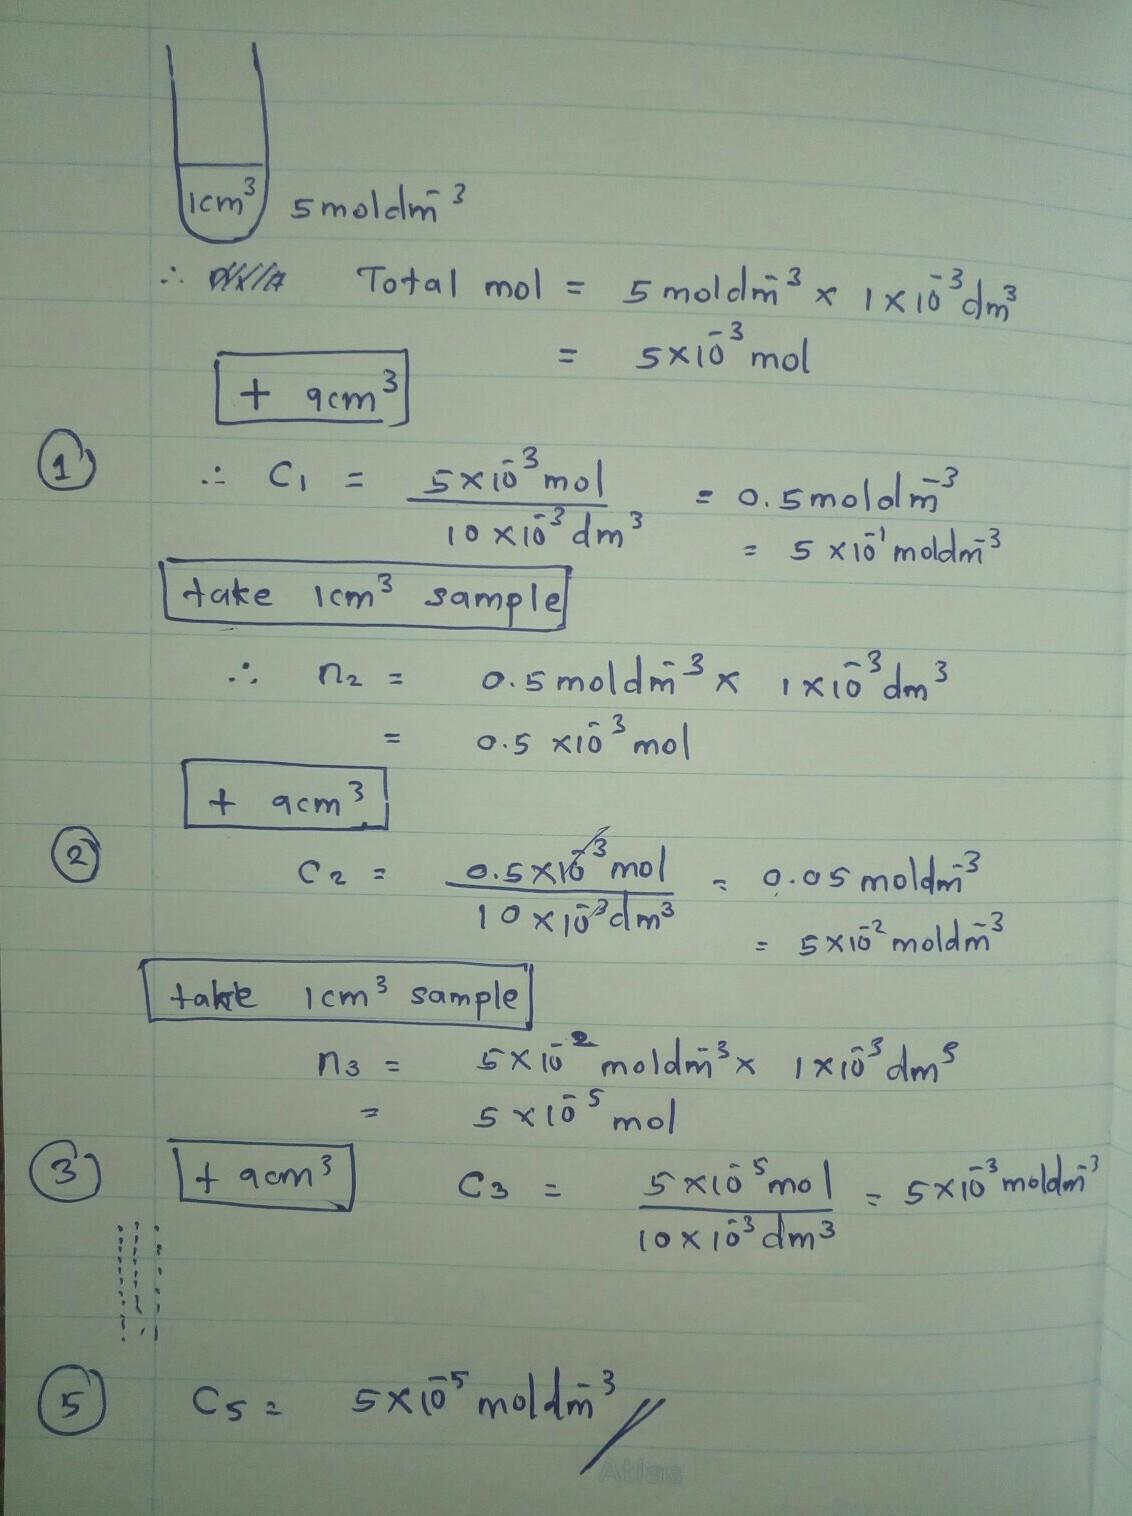 1cm³ 5 moldm⁻³
∴ Total mol = 5 moldm⁻³ × 1×10⁻³ dm³
= 5×10⁻³ mol
+ 9cm³
① ∴ C₁ = 5×10⁻³ mol / 10×10⁻³ dm³ = 0.5 moldm⁻³
= 5×10⁻¹ moldm⁻³
take 1cm³ sample
∴ n₂ = 0.5 moldm⁻³ × 1×10⁻³ dm³
= 0.5×10⁻³ mol
+ 9cm³
② C₂ = 0.5×10⁻³ mol / 10×10⁻³ dm³ = 0.05 moldm⁻³
= 5×10⁻² moldm⁻³
take 1cm³ sample
n₃ = 5×10⁻² moldm⁻³ × 1×10⁻³ dm³
= 5×10⁻⁵ mol
③ + 9cm³ C₃ = 5×10⁻⁵ mol / 10×10⁻³ dm³ = 5×10⁻³ moldm⁻³
⑤ C₅ = 5×10⁻⁵ moldm⁻³
Atlas